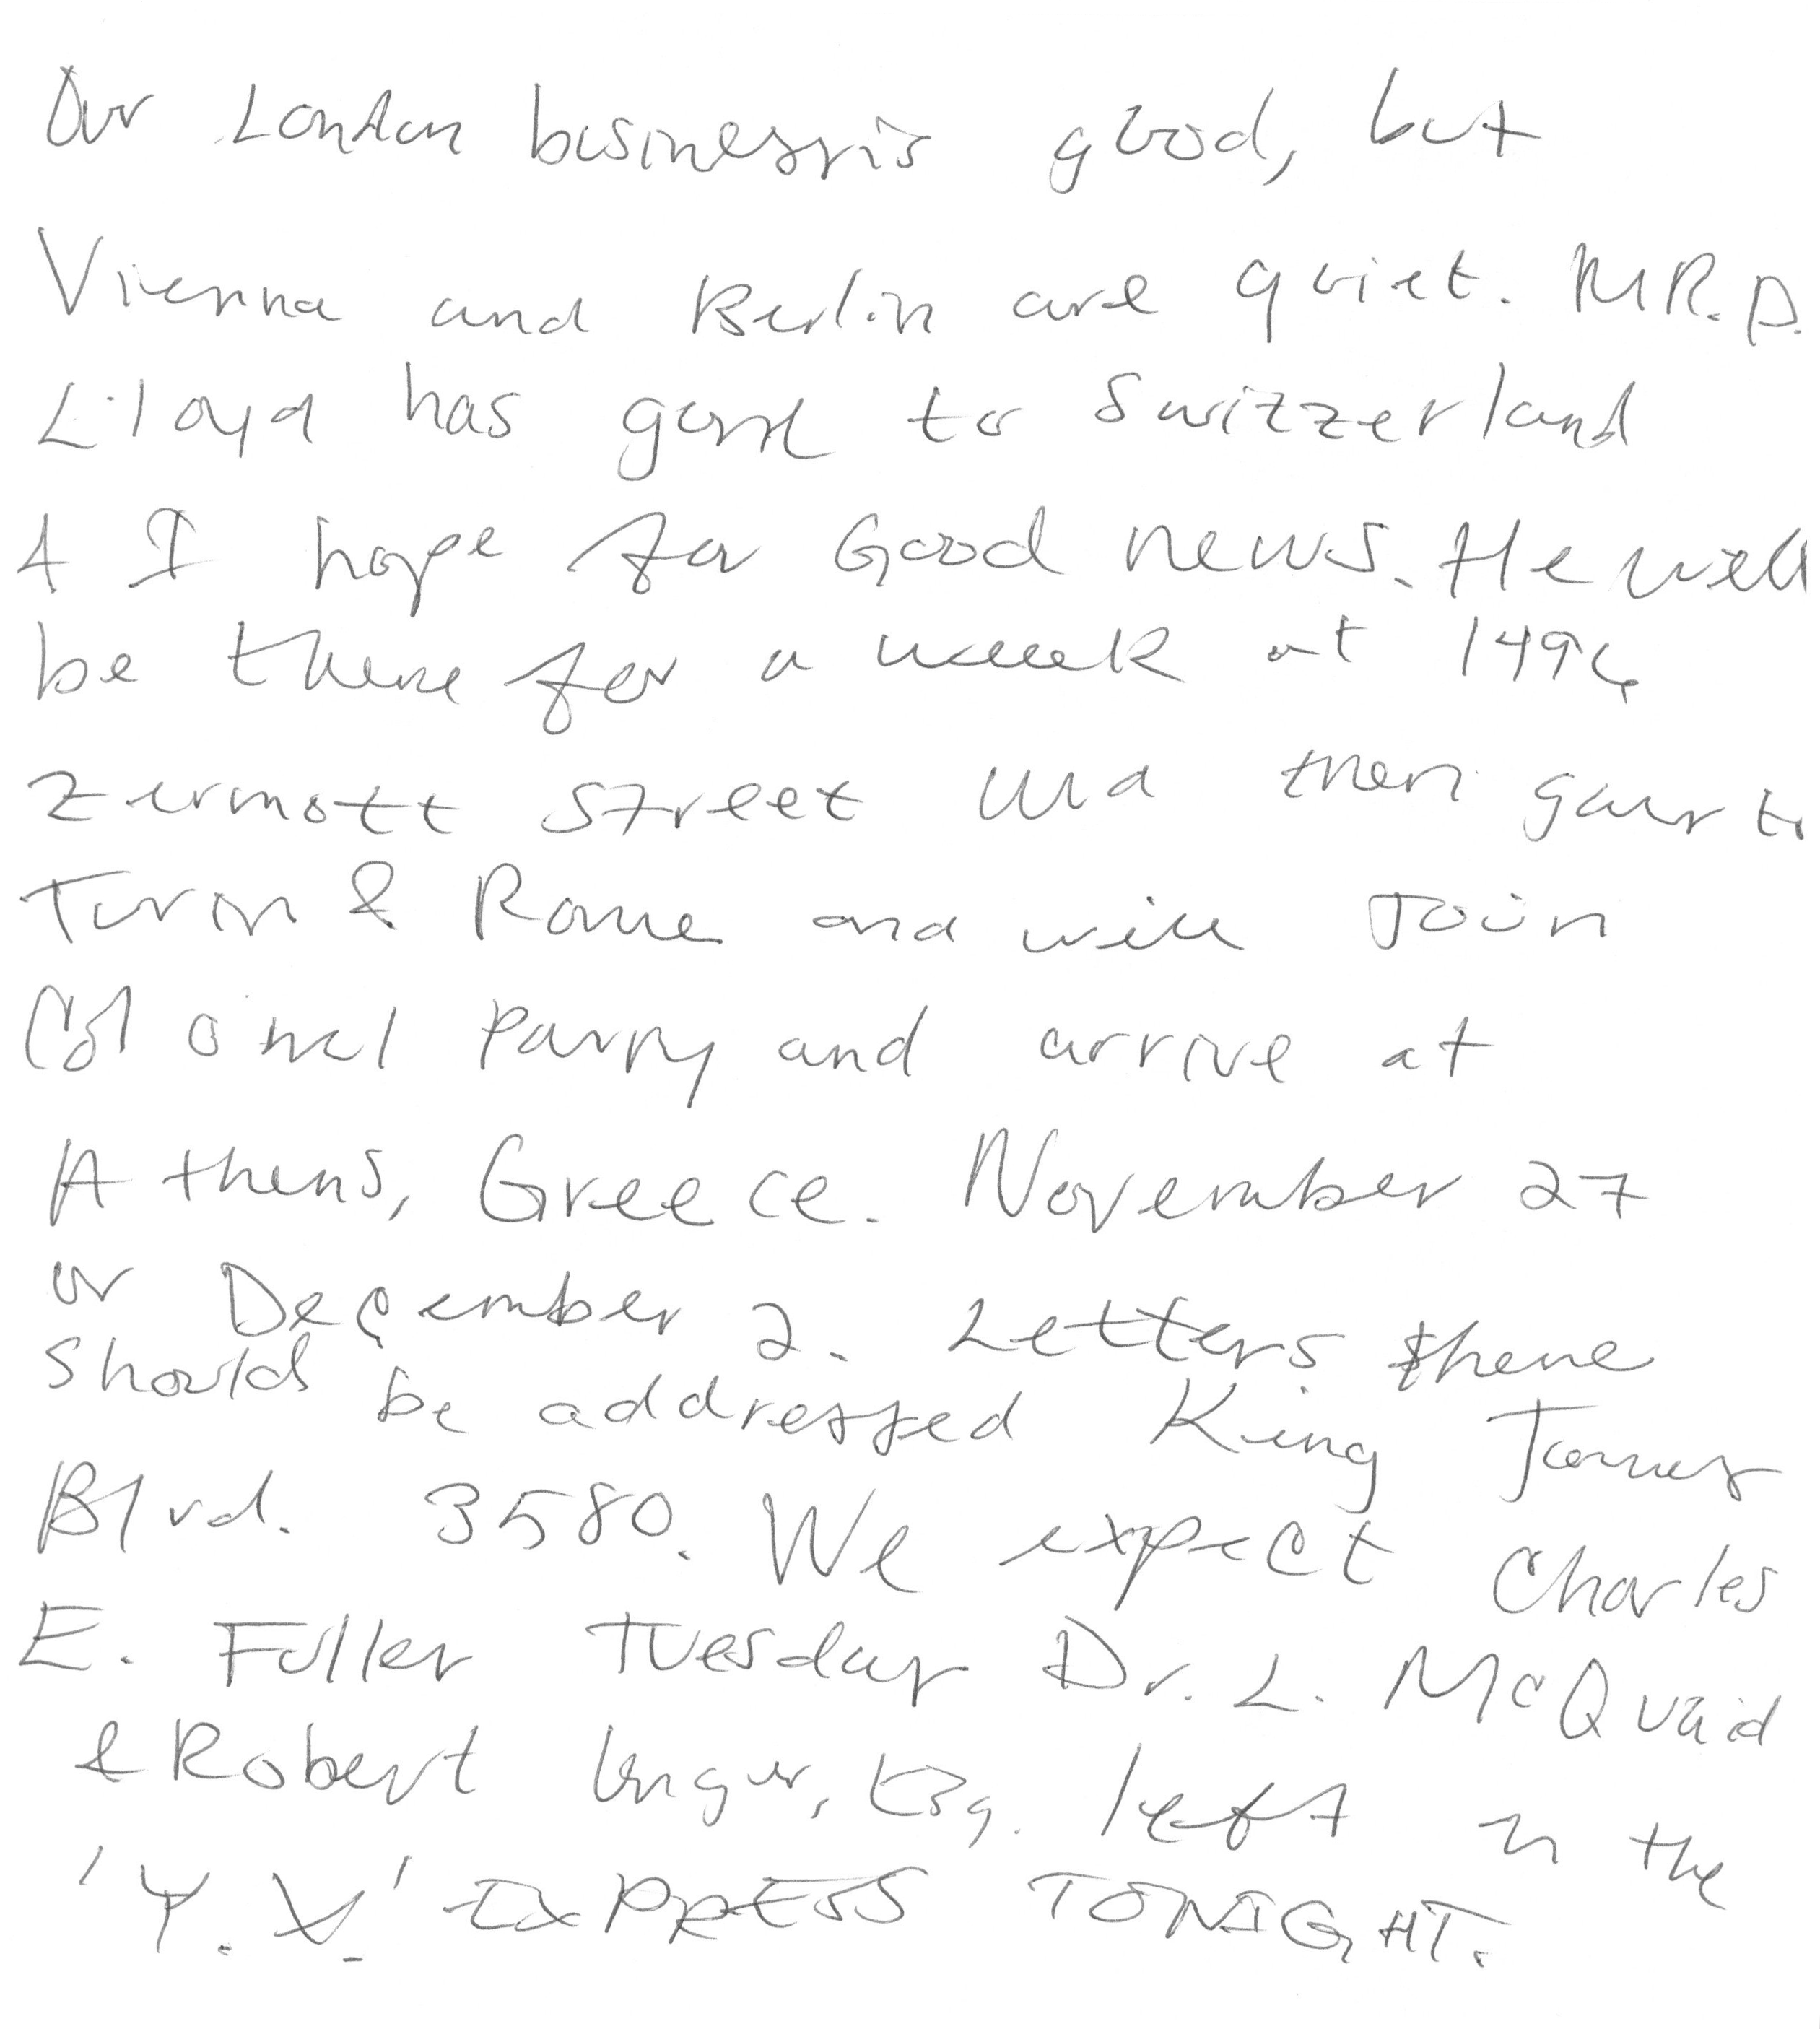 Our London business is good, but
Vienna and Berlin are quiet. MR. D.
Lloyd has gone to Switzzerland
& I hope for Good news. He will
be there for a week at 1496
Zermott Street and then goes to
Turin & Rome and will Join
Colonel Parry and arrive at
Athens, Greece. November 27
or December 2. Letters there
should be addressed King James
Blvd. 3580. We expect Charles
E. Fuller Tuesday Dr. L. McQuaid
& Robert Unger, Esq. left on the
'Y. X.' EXPRESS TONIGHT.